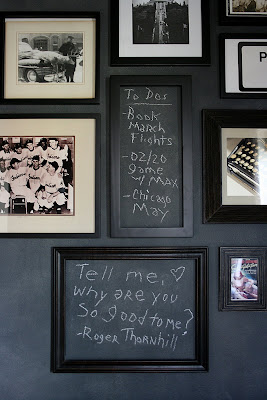 To Dos
-Book
March
Flights
-02/20
game
w/ Max
-Chicago
May
P
Tell me, ♡
why are you
so good to me?
-Roger Thornhill